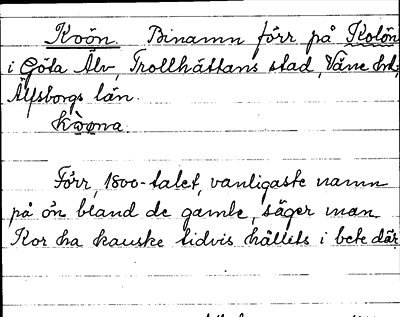 Koön. Binamn förr på Kolön
i Göta Älv, Trollhättans stad, Väne hd,
Älvsborgs län.
kòọna
Förr, 1800-talet, vanligaste namn
på ön bland de gamle, säger man.
Kor ha kanske tidvis hållits i bete där.